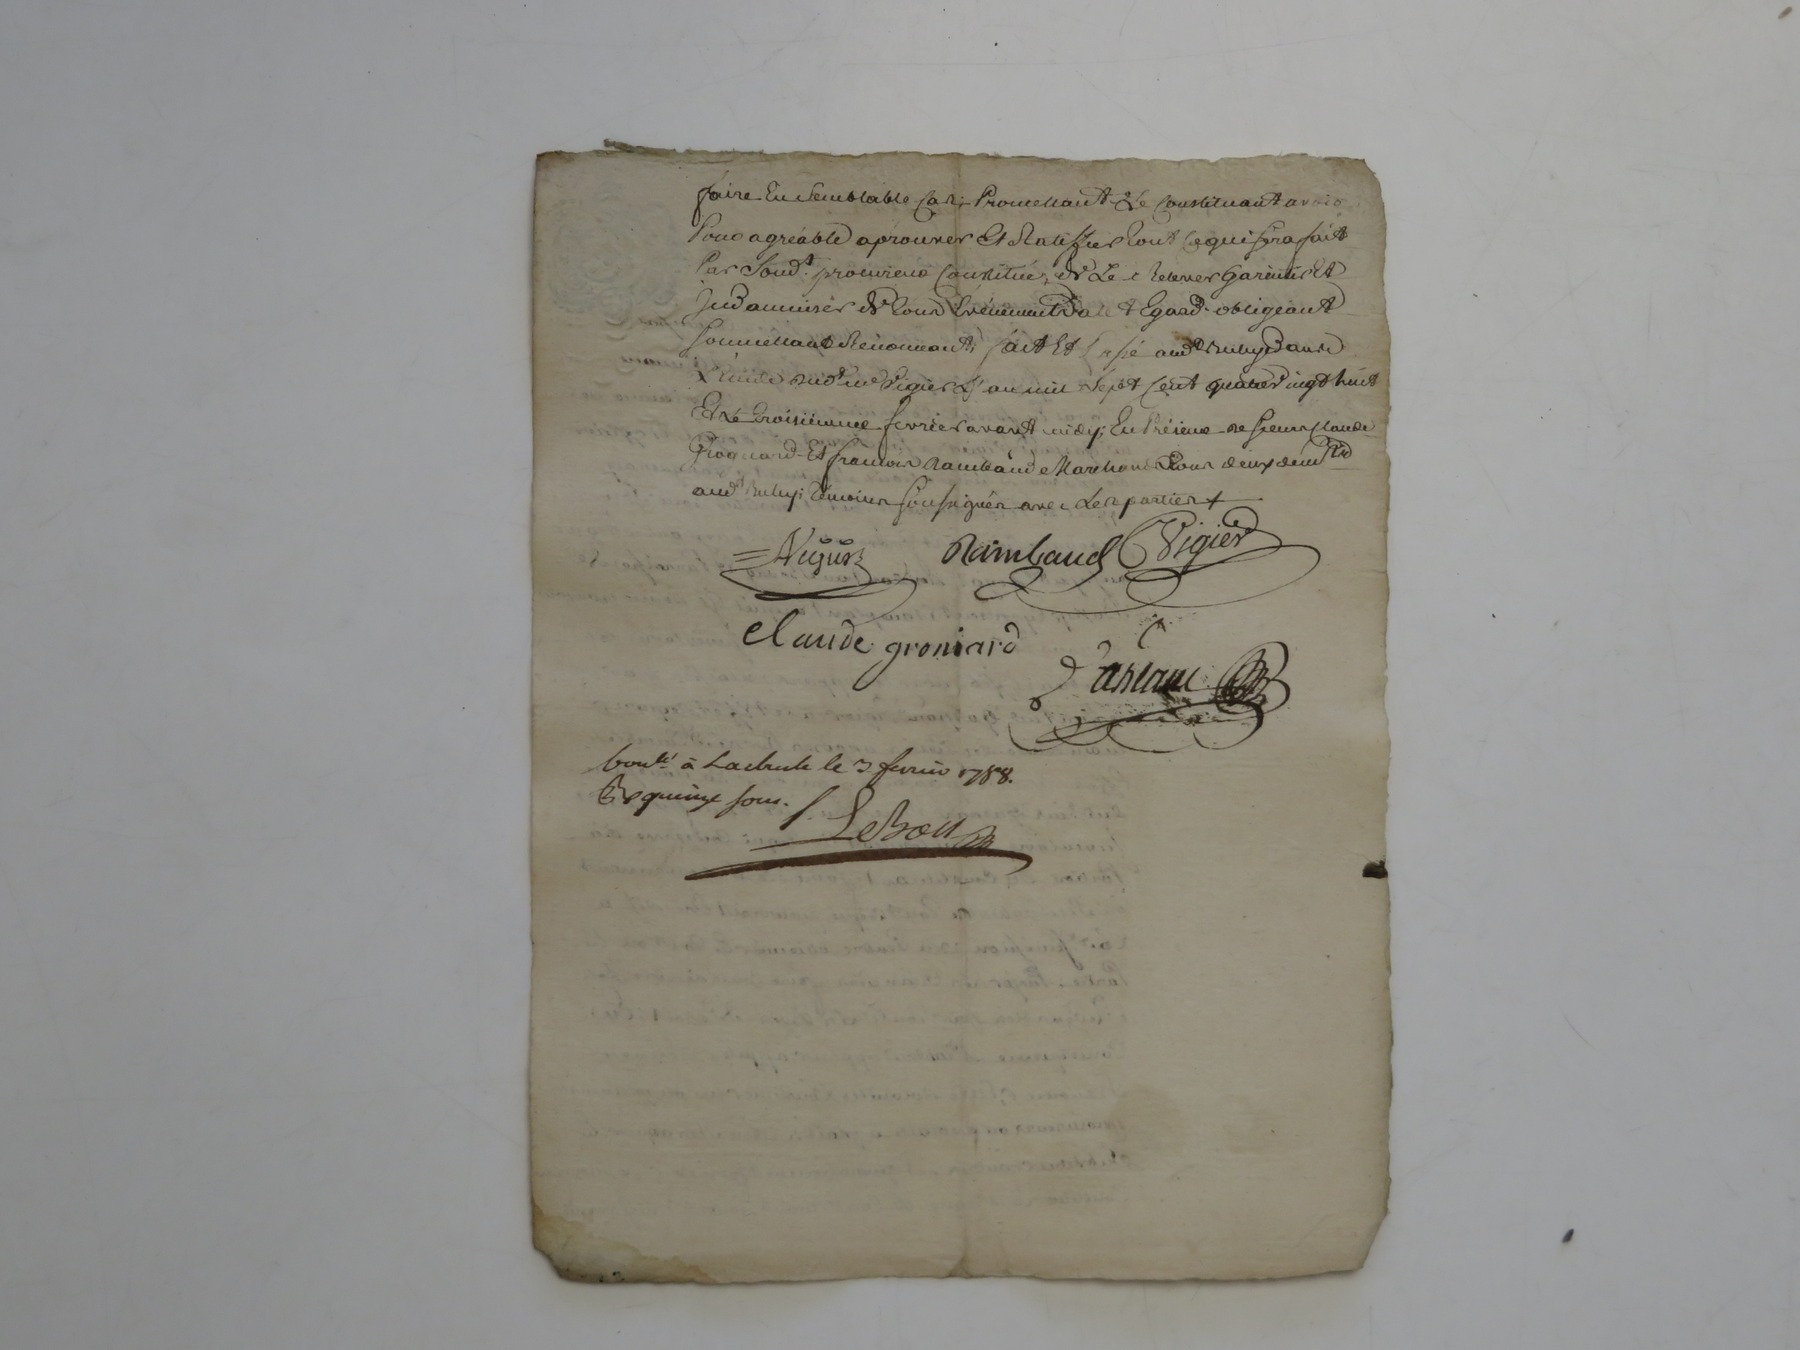 faire En Semblable Cas; Promettant Le Constituant avoir
Pour agréable aprouver Et Ratiffier tout ce qui sera fait
Par Soud.t procureur Constitué, de Le Relever Garentir Et
Indamniser de tous Evénements a Egard obligeant
Soumettant Renonceant; fait Et Passé aud.t dans
L'Etude dud.t me Vigier L'an mil Sept Cent quatre vingt huit
Et Le troisiemme fevrier avant midy; En Présence de sieurs Claude
Grognard Et francois Rambaud Marchands tous deux
aud.t témoins soussignés avec Les parties
Rambaud Vigier
Claude groniard
à le 3 fevrier 1788.
quinze sous.